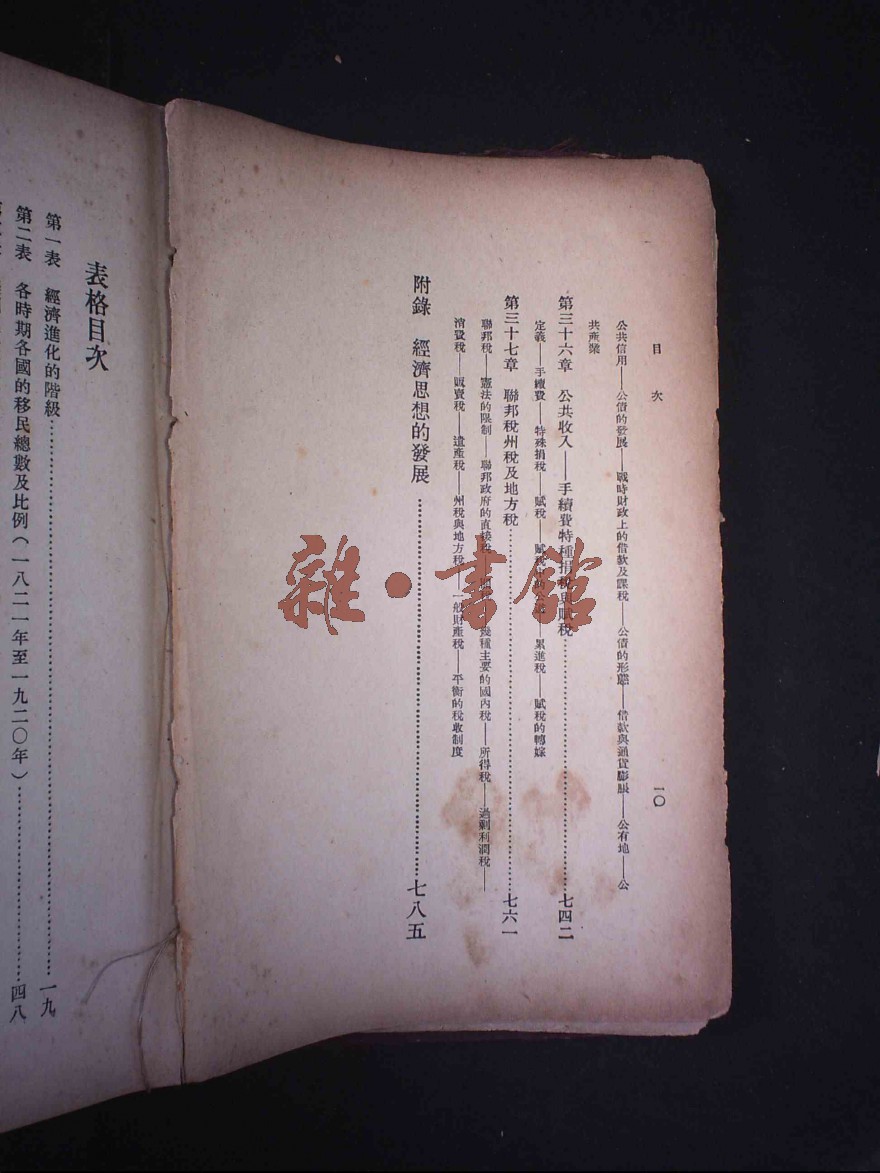 目次
一〇
公共信用——公債的發展——戰時財政上的借款及課稅——公債的形態——借款與通貨膨脹——公有地——公
共產業
第三十六章 公共收入——手續費特種捐稅與賦稅……七四二
定義——手續費——特殊捐稅——賦稅——賦稅——累進稅——賦稅的轉嫁
第三十七章 聯邦稅州稅及地方稅……七六一
聯邦稅——憲法的限制——聯邦政府的直接稅——幾種主要的國內稅——所得稅——過剩利潤稅——
消費稅——販賣稅——遺產稅——州稅與地方稅——一般財產稅——平衡的稅收制度
附錄 經濟思想的發展……七八五
表格目次
第一表 經濟進化的階級……一九
第二表 各時期各國的移民總數及比例(一八二一年至一九二〇年)……四八
雜·書館